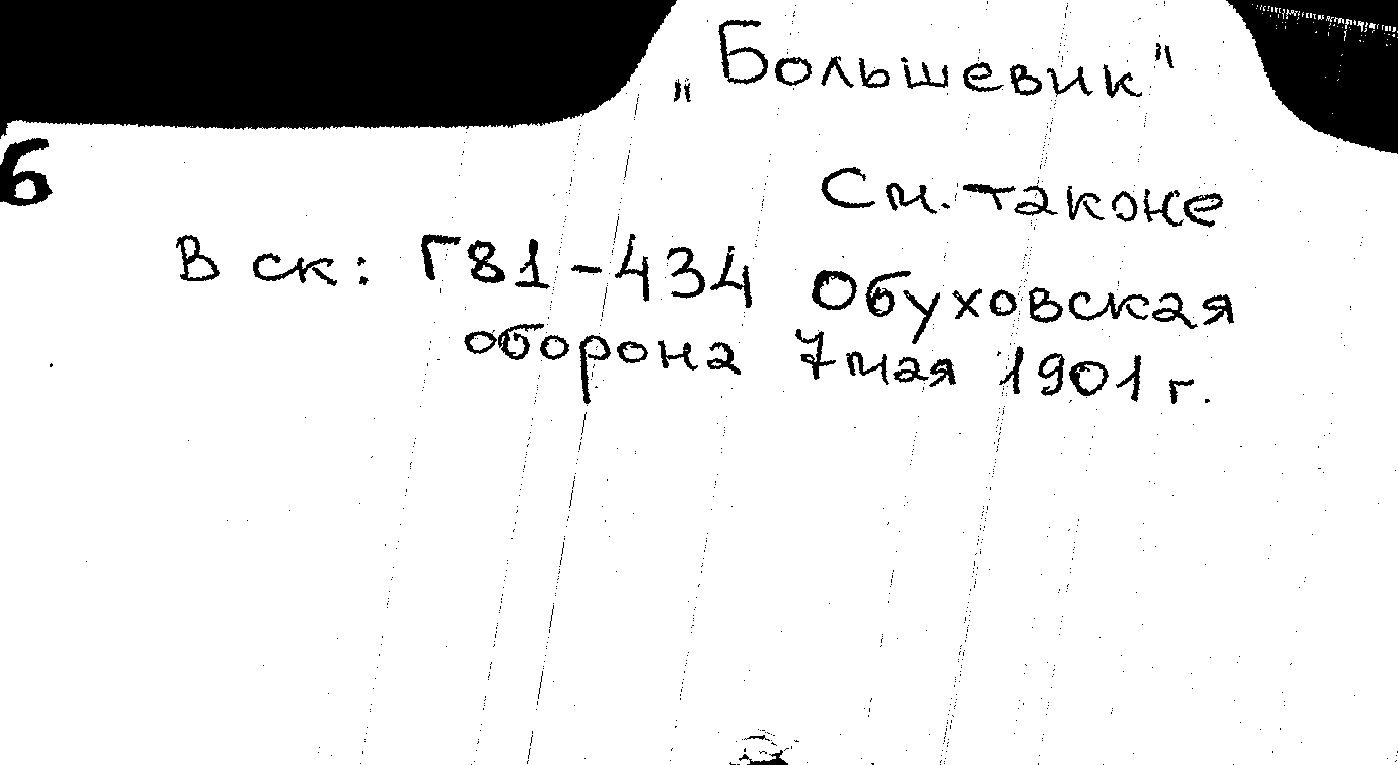 „Большевик"
Б
См. также
В ск: Г81-434 Обуховская
оборона 7 мая 1901 г.